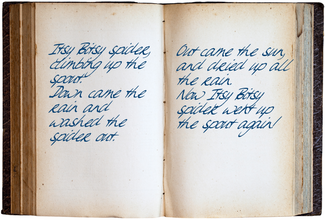 Itsy Bitsy spider,
climbing up the
spout.
Down came the
rain and
washed the
spider out.
Out came the sun,
and dried up all
the rain
Now Itsy Bitsy
spider went up
the spout again!